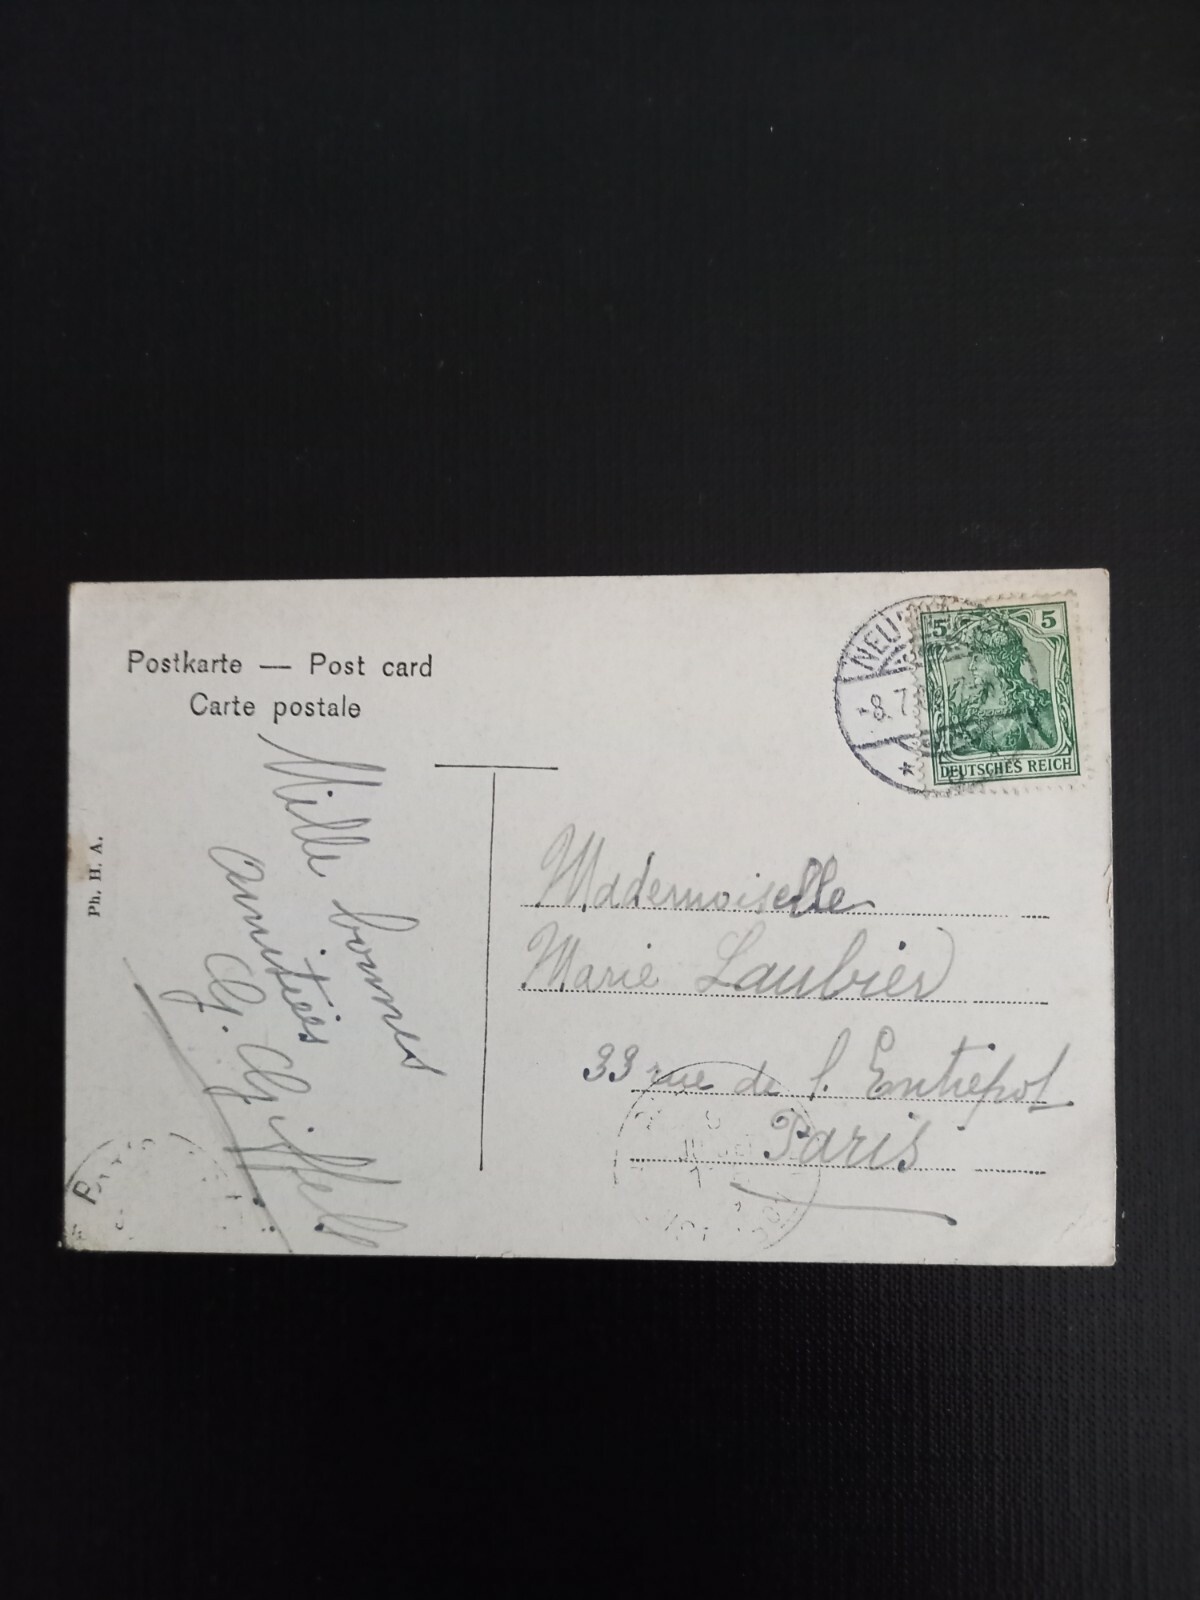 Postkarte — Post card
Carte postale
Ph. H. A.
Mille bonnes
amitiés
5 5
DEUTSCHES REICH
8.7
Mademoiselle
Marie Laubier
33 rue de l. Entrepot
Paris